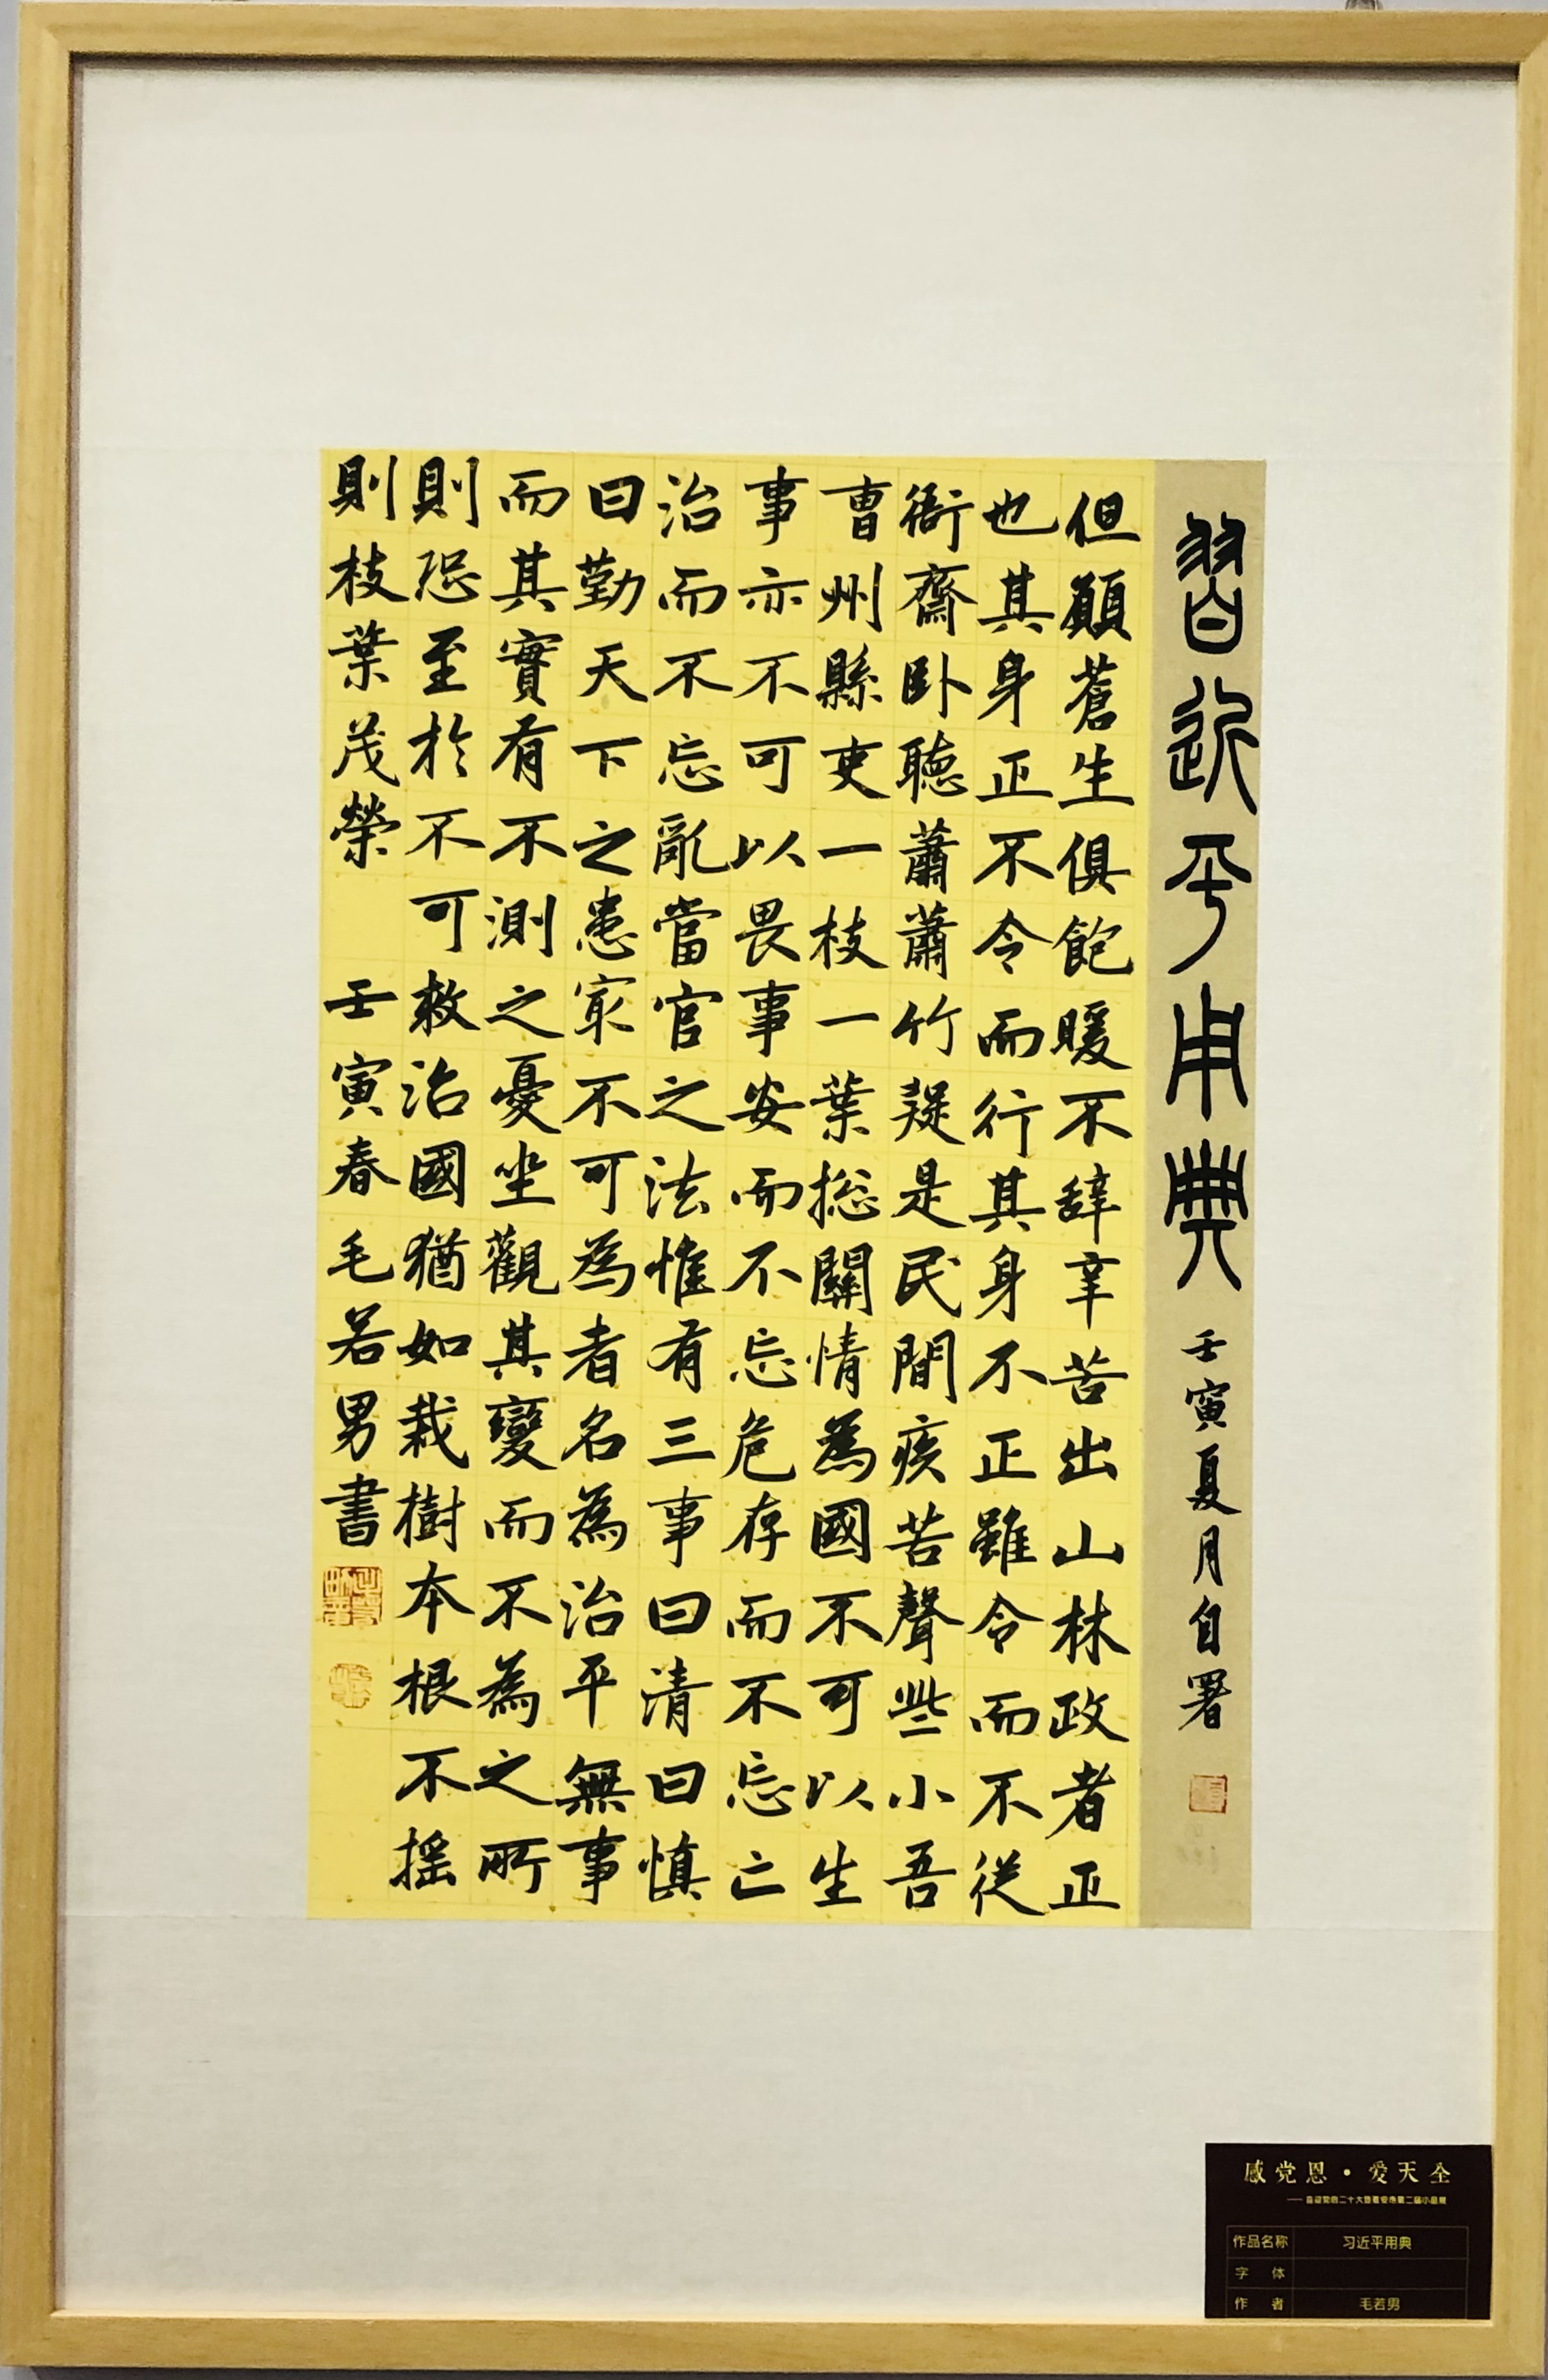 習近平用典
壬寅夏月自署
但願蒼生俱飽暖不辞辛苦出山林政者正
也其身正不令而行其身不正雖令而不從
衙齋卧聴蕭蕭竹疑是民間疾苦聲些小吾
曹州縣吏一枝一葉総關情為國不可以生
事亦不可以畏事安而不忘危存而不忘亡
治而不忘亂當官之法惟有三事曰清曰慎
曰勤天下之患冣不可為者名為治平無事
而其實有不測之憂坐觀其變而不為之所
則恐至於不可救治國猶如栽樹本根不摇
則枝葉茂榮 壬寅春毛若男書
感党恩·爱天全
作品名称 习近平用典
字体
作者 毛若男